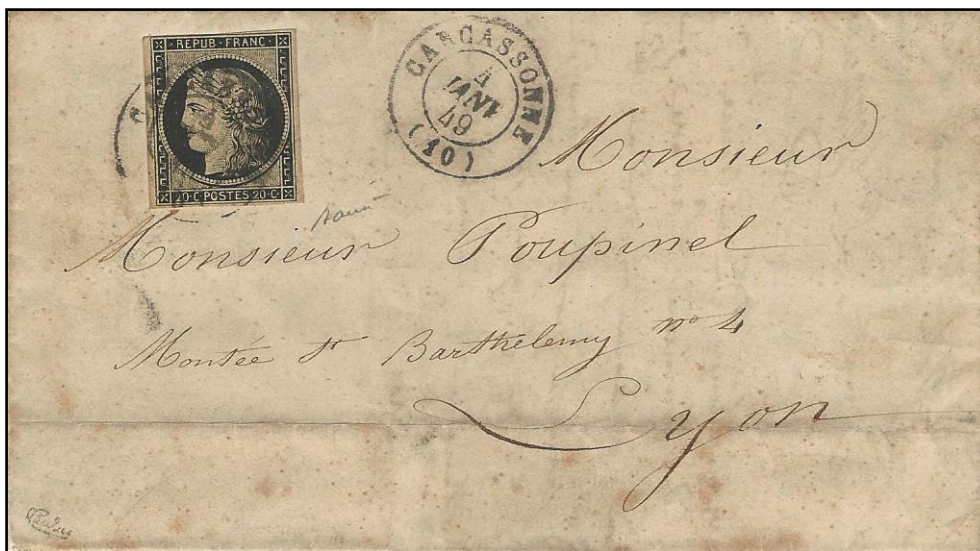 REPUB·FRANC·
20·C·POSTES 20·C·
CARCASSONNE
4
JANV
49
(10)
Monsieur
Monsieur Poupinel
Montée St Barthelemy n° 4
Lyon